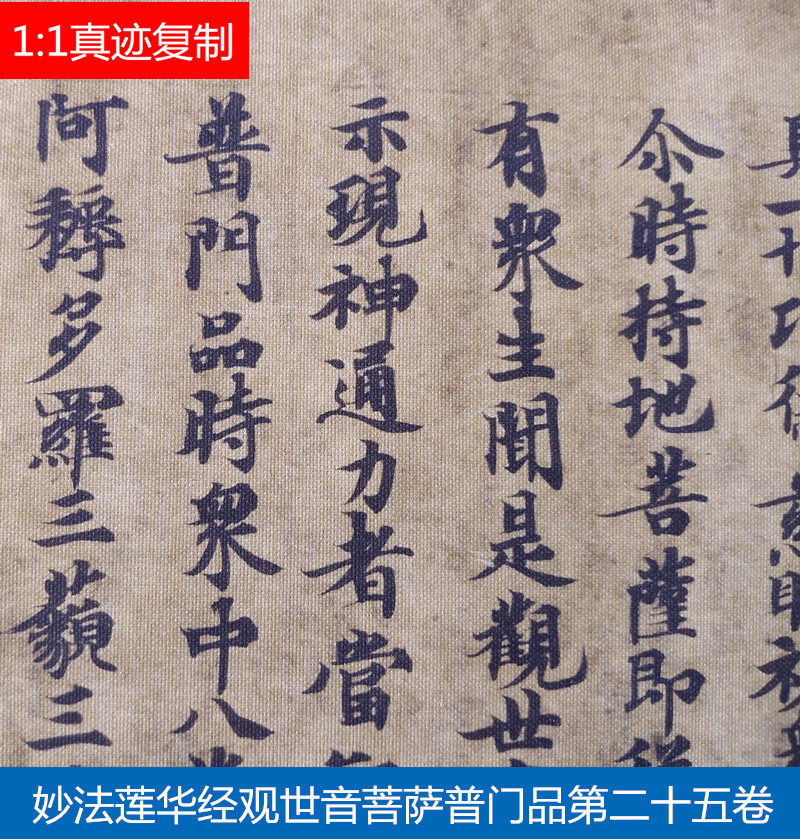 1:1真迹复制
具一切功德慈眼視衆
尒時持地菩薩即從
有衆生聞是觀世
示現神通力者當
普門品時衆中八
阿耨多羅三藐三
妙法莲华经观世音菩萨普门品第二十五卷